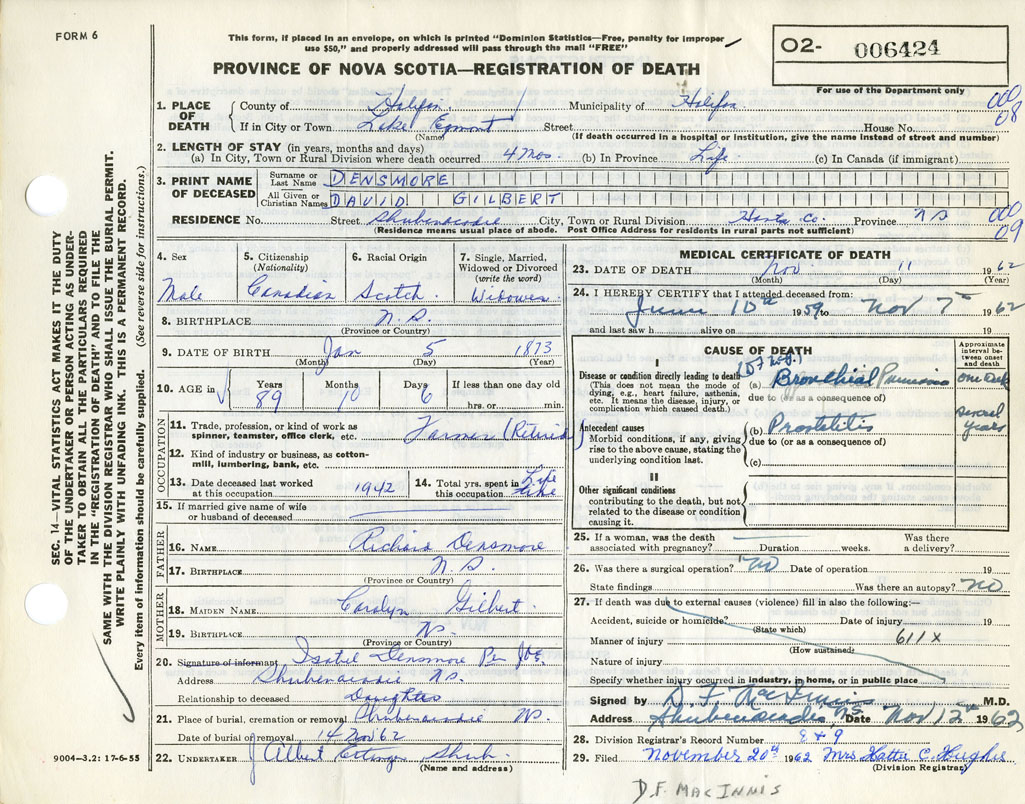 FORM 6
This form, if placed in an envelope, on which is printed "Dominion Statistics—Free, penalty for improper
use $50," and properly addressed will pass through the mail "FREE"
PROVINCE OF NOVA SCOTIA—REGISTRATION OF DEATH
O2- 006424
For use of the Department only
000
08
1. PLACE OF DEATH County of Halifax Municipality of Halifax
If in City or Town Lake Egmont Street House No.
(Name) (If death occurred in a hospital or institution, give the name instead of street and number)
2. LENGTH OF STAY (in years, months and days)
(a) In City, Town or Rural Division where death occurred 4 mos. (b) In Province Life (c) In Canada (if immigrant)
3. PRINT NAME OF DECEASED Surname or Last Name DENSMORE
All Given or Christian Names DAVID GILBERT
RESIDENCE No. Street Shubenacadie City, Town or Rural Division Hants Co. Province NS
(Residence means usual place of abode. Post Office Address for residents in rural parts not sufficient)
000
09
4. Sex
Male
5. Citizenship
(Nationality)
Canadian
6. Racial Origin
Scotch
7. Single, Married,
Widowed or Divorced
(write the word)
Widower
8. BIRTHPLACE N.S.
(Province or Country)
9. DATE OF BIRTH Jan 5 1873
(Month) (Day) (Year)
10. AGE in Years Months Days If less than one day old
89 10 6 hrs. or min.
OCCUPATION
11. Trade, profession, or kind of work as
spinner, teamster, office clerk, etc. Farmer (Retired)
12. Kind of industry or business, as cotton-
mill, lumbering, bank, etc.
13. Date deceased last worked
at this occupation 1942
14. Total yrs. spent in
this occupation Life
15. If married give name of wife
or husband of deceased
FATHER
16. NAME Richard Densmore
17. BIRTHPLACE N.S.
(Province or Country)
MOTHER
18. MAIDEN NAME Carolyn Gilbert
19. BIRTHPLACE NS.
(Province or Country)
20. Signature of informant Isabel Densmore Per
Address Shubenacadie NS.
Relationship to deceased Daughter
21. Place of burial, cremation or removal Shubenacadie NS.
Date of burial or removal 14 Nov 62
22. UNDERTAKER J Albert Ettinger Shub
(Name and address)
MEDICAL CERTIFICATE OF DEATH
23. DATE OF DEATH Nov 11 1962
(Month) (Day) (Year)
24. I HEREBY CERTIFY that I attended deceased from:
June 10th 1959 to Nov 7th 1962
and last saw h alive on 19
CAUSE OF DEATH
Approximate
interval be-
tween onset
and death
I
Disease or condition directly leading to death
(This does not mean the mode of
dying, e.g., heart failure, asthenia,
etc. It means the disease, injury, or
complication which caused death.)
(a) Bronchial Pneumonia one
due to (or as a consequence of)
Antecedent causes
Morbid conditions, if any, giving
rise to the above cause, stating the
underlying condition last.
(b) Prostetitis several years
due to (or as a consequence of)
(c)
II
Other significant conditions
contributing to the death, but not
related to the disease or condition
causing it.
25. If a woman, was the death Was there
associated with pregnancy? Duration weeks. a delivery?
26. Was there a surgical operation? no Date of operation 19
State findings Was there an autopsy? no
27. If death was due to external causes (violence) fill in also the following:—
Accident, suicide or homicide? Date of injury 19
(State which)
Manner of injury 611X
(How sustained)
Nature of injury
Specify whether injury occurred in industry, in home, or in public place
Signed by D. F. MacInnis M.D.
Address Shubenacadie NS Date Nov 12th 1962
28. Division Registrar's Record Number
29. Filed November 20th 1962 Mrs Hattie C. Hughes
(Division Registrar)
D.F. MACINNIS
9004—3.2: 17-6-55
SEC. 14—VITAL STATISTICS ACT MAKES IT THE DUTY
OF THE UNDERTAKER OR PERSON ACTING AS UNDER-
TAKER TO OBTAIN ALL THE PARTICULARS REQUIRED
IN THE "REGISTRATION OF DEATH" AND TO FILE THE
SAME WITH THE DIVISION REGISTRAR WHO SHALL ISSUE THE BURIAL PERMIT.
WRITE PLAINLY WITH UNFADING INK. THIS IS A PERMANENT RECORD.
Every item of information should be carefully supplied. (See reverse side for instructions.)